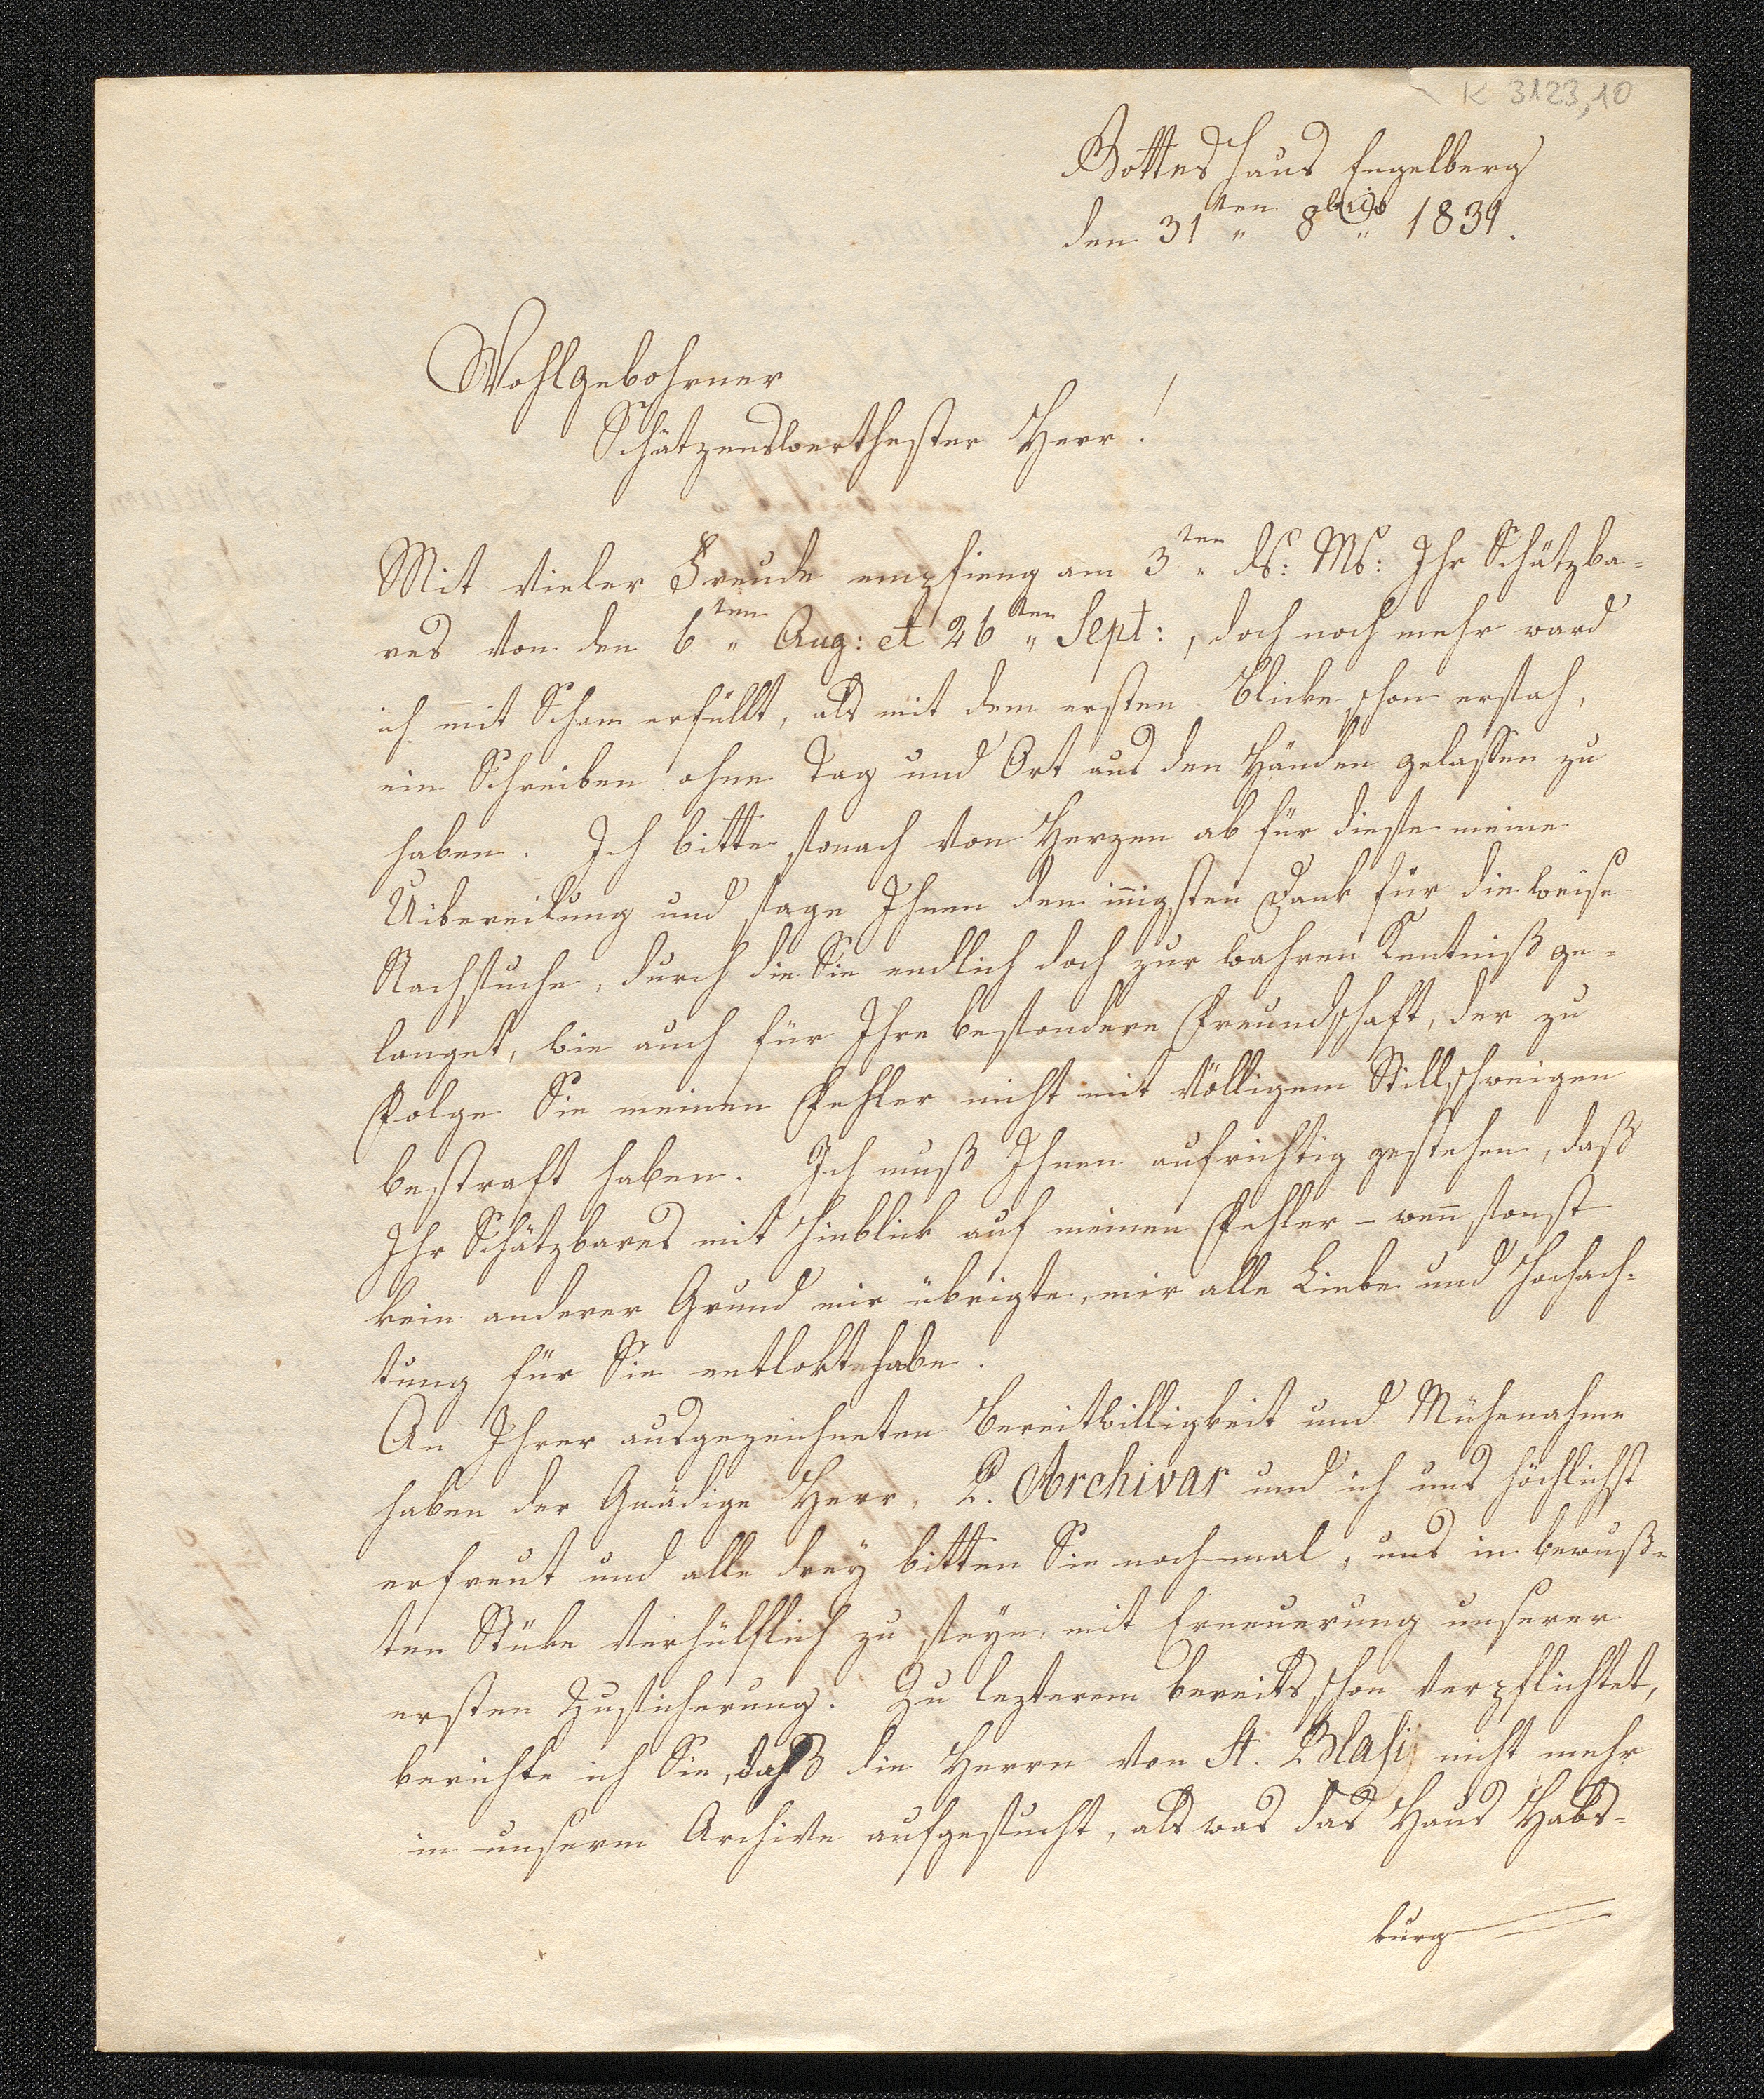 K 3123,10
Gotteshaus Engelberg
den 31ten 8bris 1831.
Wohlgebohrner
Schätzenswerthester Herr!
Mit vieler Freude empfieng am 3ten ds: Ms: Ihr Schätzba-
res von den 6ten Aug: et 26ten Sept:, doch noch mehr ward
ich mit Scham erfüllt, als mit dem ersten Blicke schon ersah,
ein Schreiben ohne Tag und Ort aus den Händen gelassen zu
haben. Ich bitte sonach von Herzen ab für diese meine
Uibereilung und sage Ihnen den innigsten Dank für die weise
Nachsuche, durch die Sie endlich doch zur wahren Kentniß ge-
langet, wie auch für Ihre besondere Freundschaft, der zu
Folge Sie meinen Fehler nicht mit völligem Stillschweigen
bestraft haben. Ich muß Ihnen aufrichtig gestehen, daß
Ihr Schätzbares mit Hinblick auf meinen Fehler – wenn sonst
kein anderer Grund mir übrigte, mir alle Liebe und Hochach-
tung für Sie entlokt habe.
An Ihrer ausgezeichneten Bereitwilligkeit und Mühenahme
haben der Gnädige Herr, P. Archivar und ich uns höchlichst
erfreut und alle drey bitten Sie nochmal, uns in bewuß-
ten Stüke verhülflich zu seyn, mit Erneuerung unserer
ersten Zusicherung. Zu lezterem bereits schon verpflichtet,
berichte ich Sie, daß die Herrn von St. Blasi nicht mehr
in unserm Archive aufgesucht, als was das Haus Habs-
burg